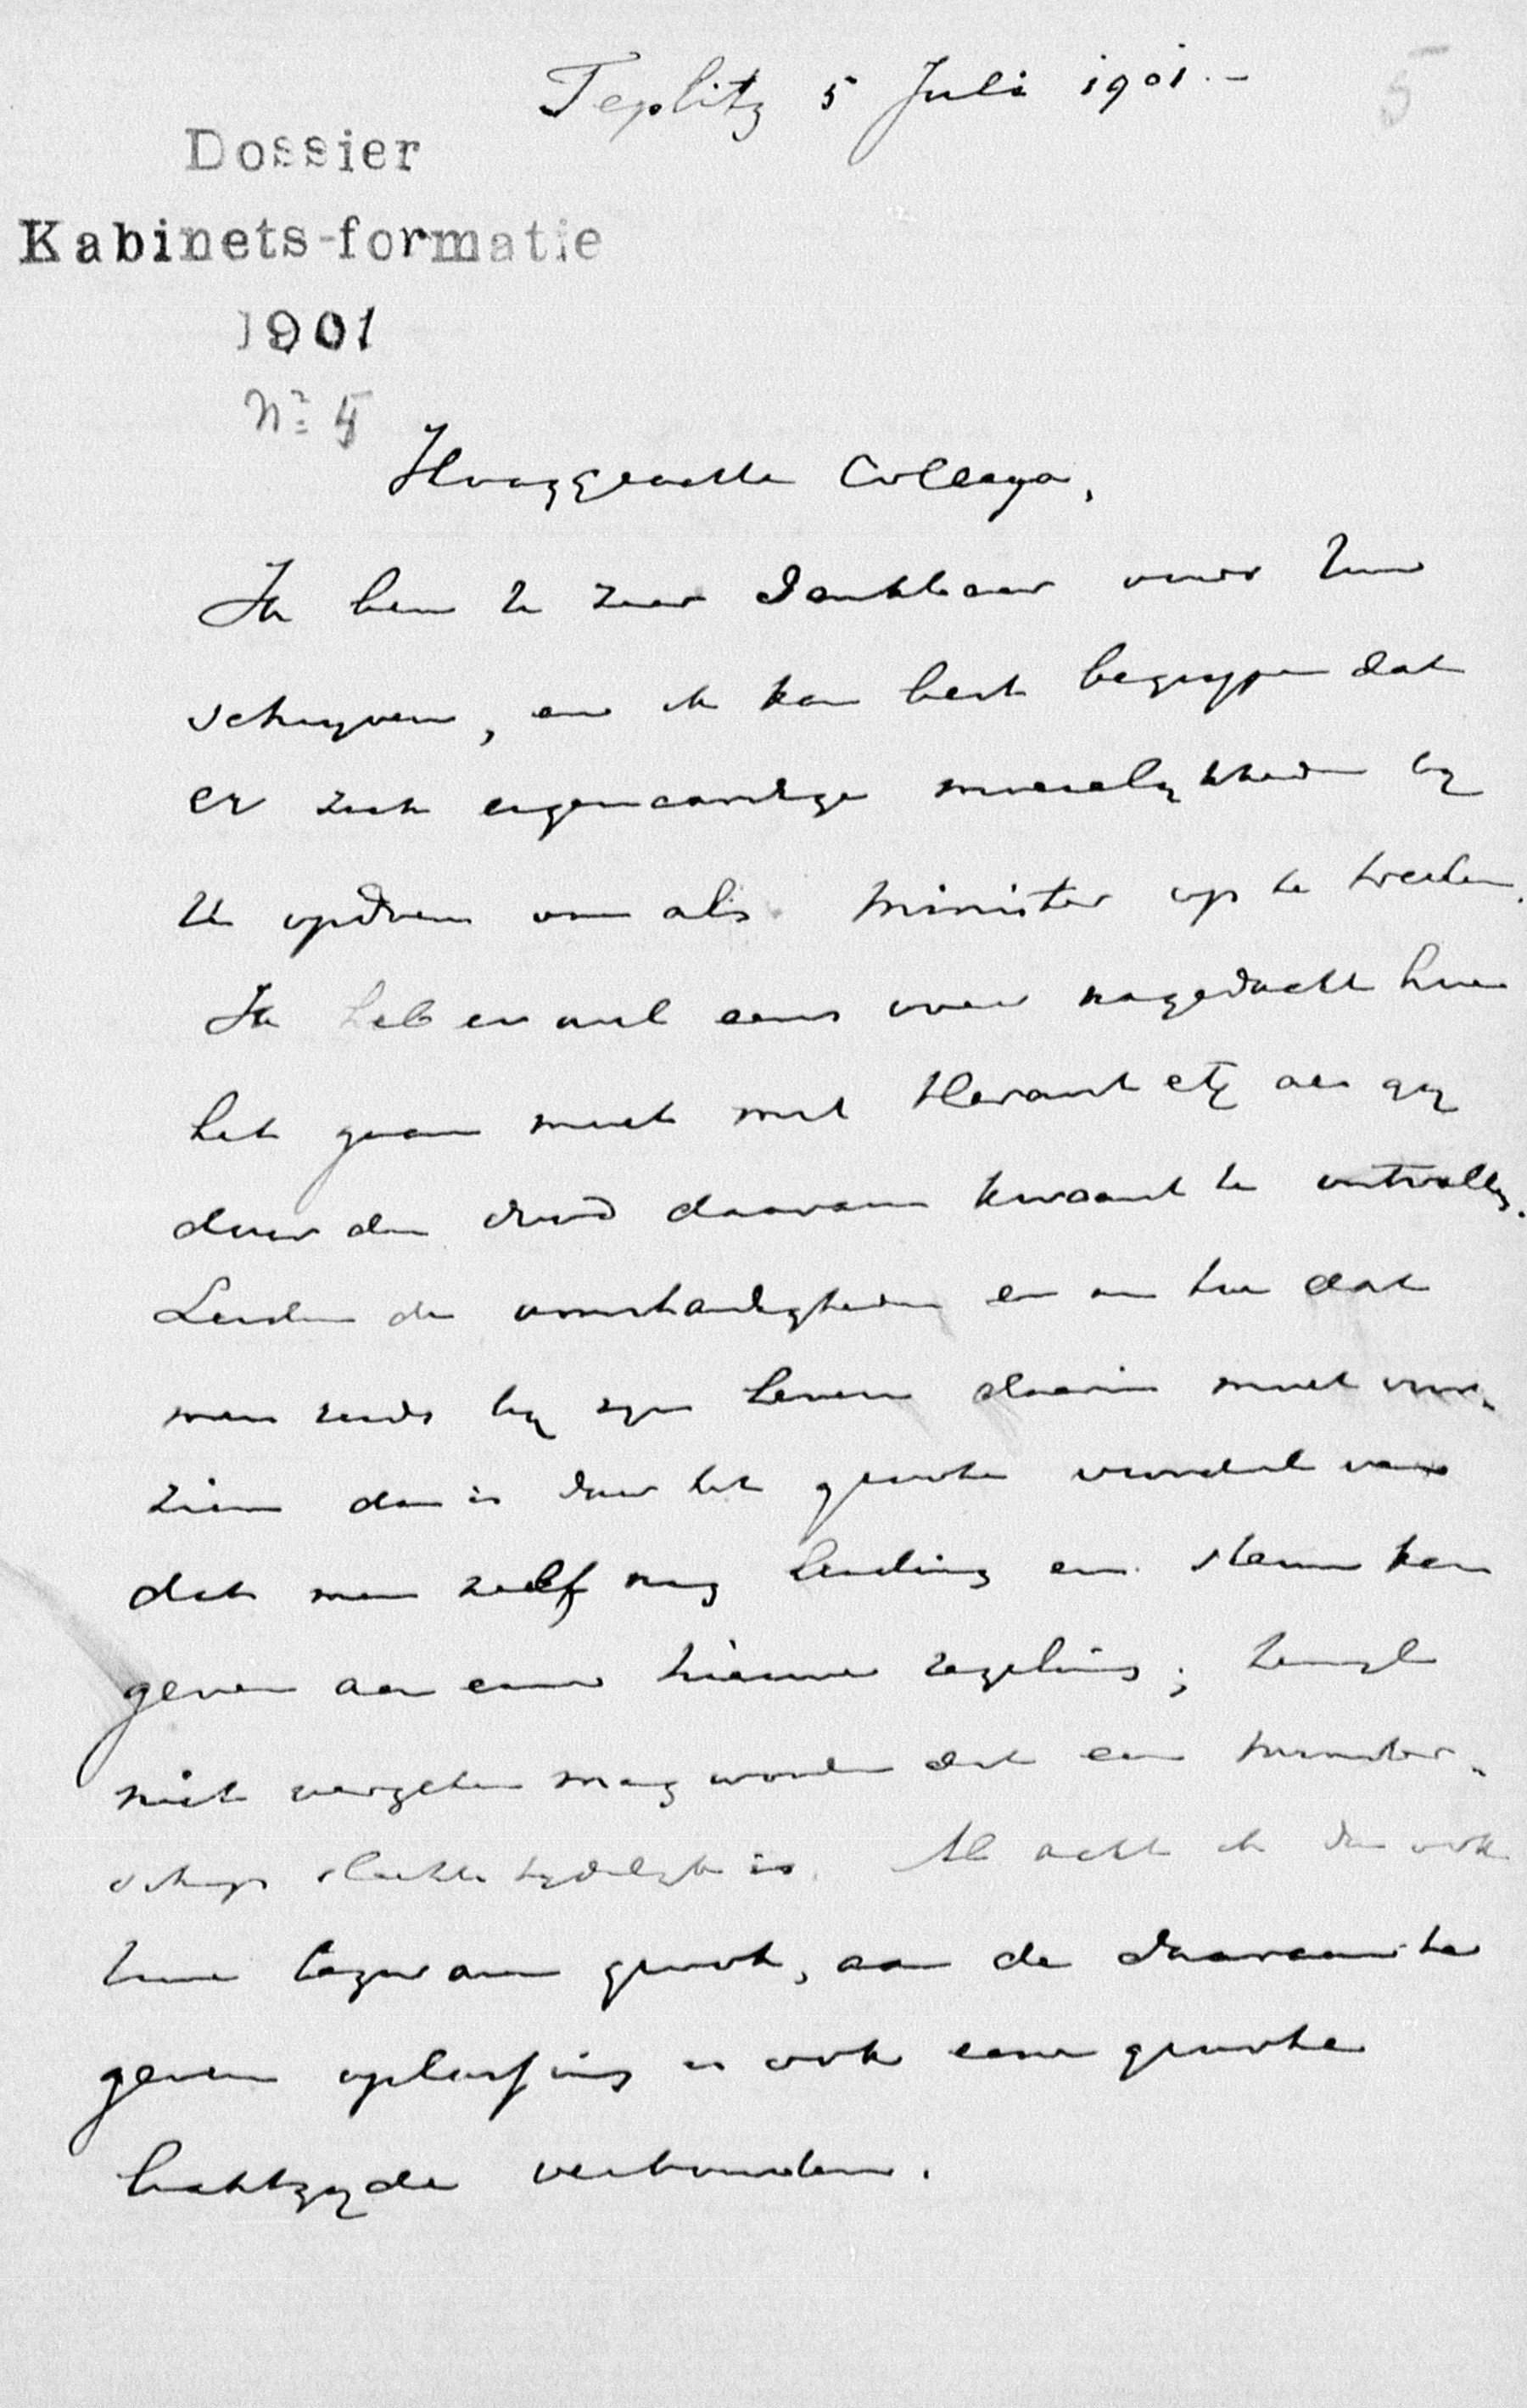 Teplitz 5 Juli 1901.-
5
Dossier
Kabinets-formatie
1901
No 5
Hooggeachte Collega,
Ik ben U zeer dankbaar voor Uw
schrijven, en ik kan best begrijpen dat
er zich eigenaardige moeielijkheden bij
U opdoen om als Minister op te treden.
Ik heb er wel eens over nagedacht hoe
het gaan moet met Heraut etz als gij
door den dood daaraan kwaamt te ontvallen.
Leiden de omstandigheden er nu toe dat
men reeds bij zijn leven daarin moet voor-
zien dan is daar het groote voordeel van
dat men zelf nog leiding en steun kan
geven aan eene nieuwe regeling; terwijl
niet vergeten mag worden dat een minister-
schap slechts tijdelijk is. Al acht ik dan ook
Uwe bezwaren groot, aan de daaraan te
geven oplossing is ook eene groote
lichtzijde verbonden.